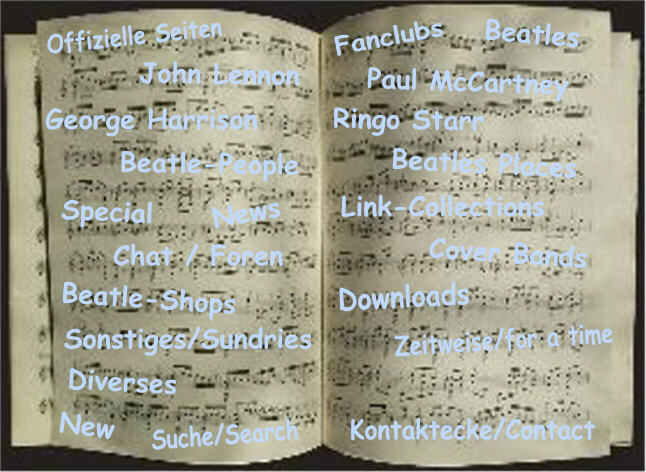 Offizielle Seiten
John Lennon
George Harrison
Beatle-People
Special News
Chat / Foren
Beatle-Shops
Sonstiges/Sundries
Diverses
New Suche/Search
Fanclubs Beatles
Paul McCartney
Ringo Starr
Beatles Places
Link-Collections
Cover Bands
Downloads
Zeitweise/for a time
Kontaktecke/Contact